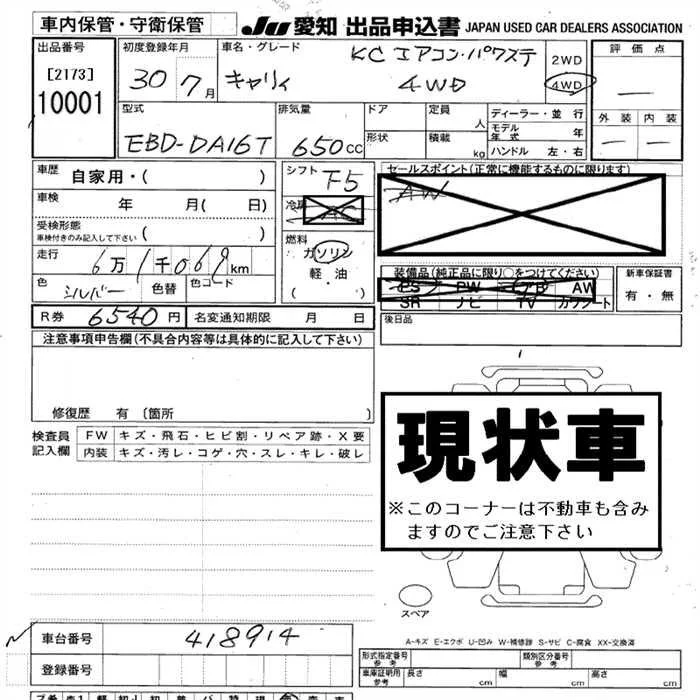 車内保管・守衛保管
JU 愛知 出品申込書 JAPAN USED CAR DEALERS ASSOCIATION
出品番号
[2173]
10001
初度登録年月
30 7月
車名・グレード
KCエアコン・パワステ
キャリィ 4WD
2WD
4WD
評価点
—
外装 内装
— —
型式
EBD-DA16T
排気量
650cc
ドア
形状
定員 人
積載 kg
ディーラー・並行
モデル年式 年
ハンドル 左・右
車歴 自家用・( )
車検 年 月( 日)
受検形態
車検付きのみ記入して下さい ( )
走行 6万1千069km
色 シルバー 色替 色コード
シフト F5
冷房 AC
燃料
ガソリン
軽・油
( )
セールスポイント(正常に機能するものに限ります)
AW
装備品(純正品に限り○をつけてください)
PS PW エアB AW
SR ナビ TV カワシート
新車保証書
有・無
R券 6540円 名変通知期限 月 日
後日品
注意事項申告欄(不具合内容等は具体的に記入して下さい)
修復歴 有〔箇所 〕
検査員記入欄
FW キズ・飛石・ヒビ割・リペア跡・X要
内装 キズ・汚レ・コゲ・穴・スレ・キレ・破レ
現状車
※このコーナーは不動車も含み
ますのでご注意下さい
スペア
A-キズ E-エクボ U-凹み W-補修跡 S-サビ C-腐食 XX-交換済
車台番号 418914
登録番号
形式指定番号 参考
類別区分番号 参考
車庫証明用 参考 長さ cm 幅 cm 高さ cm